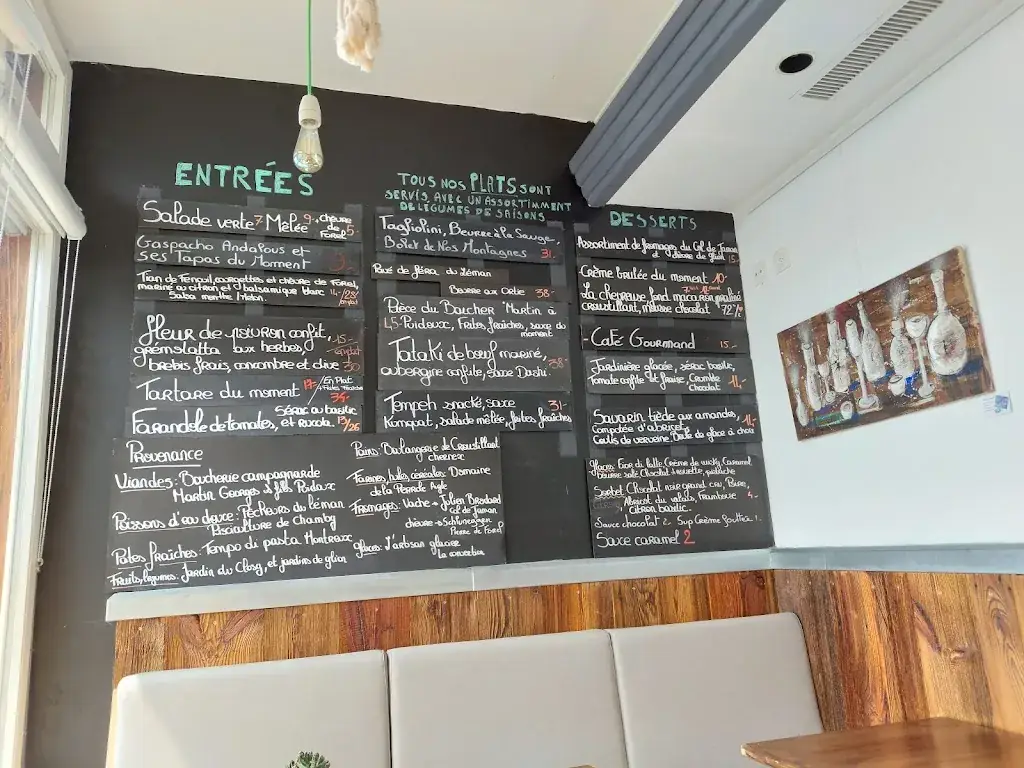 ENTRÉES
Salade verte 7 Mêlée 9.- chèvre
de
Forel 5.
Gaspacho Andalous et
ses Tapas du Moment
Tian de Fenouil, courgettes et chèvre de Forel,
mariné au citron et balsamique blanc
Salsa menthe
fleur de poivron confit, 15.-
gremolatta aux herbes,
brebis frais, concombre et olive 30
Tartare du moment 17.- / En Plat
34.-
Farandole de tomates, et Sérac au basilic
13/26
TOUS NOS PLATS SONT
SERVIS AVEC UN ASSORTIMENT
DE LEGUMES DE SAISONS
Tagliolini, Beurre à la Sauge,
Bolet de Nos Montagnes 31.-
Pavé de féra du Léman
Beurre aux Orties 38.-
Pièce du Boucher "Martin à
45.- Puidoux, Frites fraîches, sauce du
moment
Tataki de boeuf mariné,
aubergine confite, sauce Dashi 38.-
Tempeh snacké, sauce 31.-
Kumquat, salade mêlée, frites fraîches
DESSERTS
Assortiment de fromages du Col de Jaman
et chèvre de 15.-
Crème brulée du moment 10.-
La chevreuse fond macaron praliné
croustillant, mousse chocolat 72%
- Café Gourmand 15.-
Jardinière glacée, sérac basilic,
Tomate confite et fraise, Crumble
Chocolat 11.-
Savarin tiède aux amandes,
Compotée d'abricot, 11.-
Coulis de verveine Boule de glace à choix
Glaces: Fior di latte Crème de Caramel
beurre salé Chocolat Noisette, pistache
Sorbet Chocolat noir grand cru, Poire,
Abricot du valais, Framboise 4.-
Citron basilic.
Sauce chocolat 2. Sup Crème Gruyère 1.
Sauce caramel 2
Provenance
Viandes: Boucherie campagnarde
Martin Georges et fils Puidoux
Poissons d'eau douce: Pêcheurs du Léman
Pisciculture de Chamby
Pâtes fraîches: Tempo di pasta Montreux
Fruits, légumes: Jardin du Closy, et jardins de glion
Pains: Boulangerie du Croustillant
chernex
Farines, huiles, céréales: Domaine
de la Pierre de Aigle
Fromages: Vache → Julien Brodard
col de Jaman
chèvre →
Pierre de Forel
glaces: L'artisan glacier
La conversion